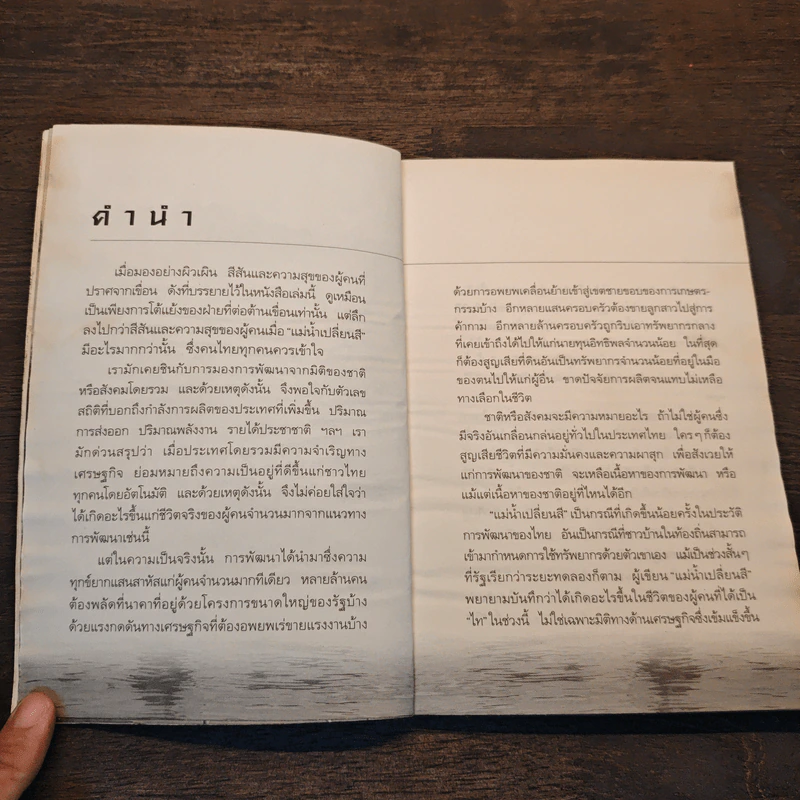 คำนำ
เมื่อมองอย่างผิวเผิน สีสันและความสุขของผู้คนที่
ปราศจากเขื่อน ดังที่บรรยายไว้ในหนังสือเล่มนี้ ดูเหมือน
เป็นเพียงการโต้แย้งของฝ่ายที่ต่อต้านเขื่อนเท่านั้น แต่ลึก
ลงไปกว่าสีสันและความสุขของผู้คนเมื่อ "แม่น้ำเปลี่ยนสี"
มีอะไรมากกว่านั้น ซึ่งคนไทยทุกคนควรเข้าใจ
เรามักเคยชินกับการมองการพัฒนาจากมิติของชาติ
หรือสังคมโดยรวม และด้วยเหตุดังนั้น จึงพอใจกับตัวเลข
สถิติที่บอกถึงกำลังการผลิตของประเทศที่เพิ่มขึ้น ปริมาณ
การส่งออก ปริมาณพลังงาน รายได้ประชาชาติ ฯลฯ เรา
มักด่วนสรุปว่า เมื่อประเทศโดยรวมมีความจำเริญทาง
เศรษฐกิจ ย่อมหมายถึงความเป็นอยู่ที่ดีขึ้นแก่ชาวไทย
ทุกคนโดยอัตโนมัติ และด้วยเหตุดังนั้น จึงไม่ค่อยใส่ใจว่า
ได้เกิดอะไรขึ้นแก่ชีวิตจริงของผู้คนจำนวนมากจากแนวทาง
การพัฒนาเช่นนี้
แต่ในความเป็นจริงนั้น การพัฒนาได้นำมาซึ่งความ
ทุกข์ยากแสนสาหัสแก่ผู้คนจำนวนมากทีเดียว หลายล้านคน
ต้องพลัดที่นาคาที่อยู่ด้วยโครงการขนาดใหญ่ของรัฐบ้าง
ด้วยแรงกดดันทางเศรษฐกิจที่ต้องอพยพเร่ขายแรงงานบ้าง
ด้วยการอพยพเคลื่อนย้ายเข้าสู่เขตชายขอบของการเกษตร-
กรรมบ้าง อีกหลายแสนครอบครัวต้องขายลูกสาวไปสู่การ
ค้ากาม อีกหลายล้านครอบครัวถูกริบเอาทรัพยากรกลาง
ที่เคยเข้าถึงได้ไปให้แก่นายทุนอิทธิพลจำนวนน้อย ในที่สุด
ก็ต้องสูญเสียที่ดินอันเป็นทรัพยากรจำนวนน้อยที่อยู่ในมือ
ของตนไปให้แก่ผู้อื่น ขาดปัจจัยการผลิตจนแทบไม่เหลือ
ทางเลือกในชีวิต
ชาติหรือสังคมจะมีความหมายอะไร ถ้าไม่ใช่ผู้คนซึ่ง
มีจริงอันเกลื่อนกล่นอยู่ทั่วไปในประเทศไทย ใครๆ ก็ต้อง
สูญเสียชีวิตที่มีความมั่นคงและความผาสุก เพื่อสังเวยให้
แก่การพัฒนาของชาติ จะเหลือเนื้อหาของการพัฒนา หรือ
แม้แต่เนื้อหาของชาติอยู่ที่ไหนได้อีก
"แม่น้ำเปลี่ยนสี" เป็นกรณีที่เกิดขึ้นน้อยครั้งในประวัติ
การพัฒนาของไทย อันเป็นกรณีที่ชาวบ้านในท้องถิ่นสามารถ
เข้ามากำหนดการใช้ทรัพยากรด้วยตัวเขาเอง แม้เป็นช่วงสั้นๆ
ที่รัฐเรียกว่าระยะทดลองก็ตาม ผู้เขียน "แม่น้ำเปลี่ยนสี"
พยายามบันทึกว่าได้เกิดอะไรขึ้นในชีวิตของผู้คนที่ได้เป็น
"ไท" ในช่วงนี้ ไม่ใช่เฉพาะมิติทางด้านเศรษฐกิจซึ่งเข้มแข็งขึ้น